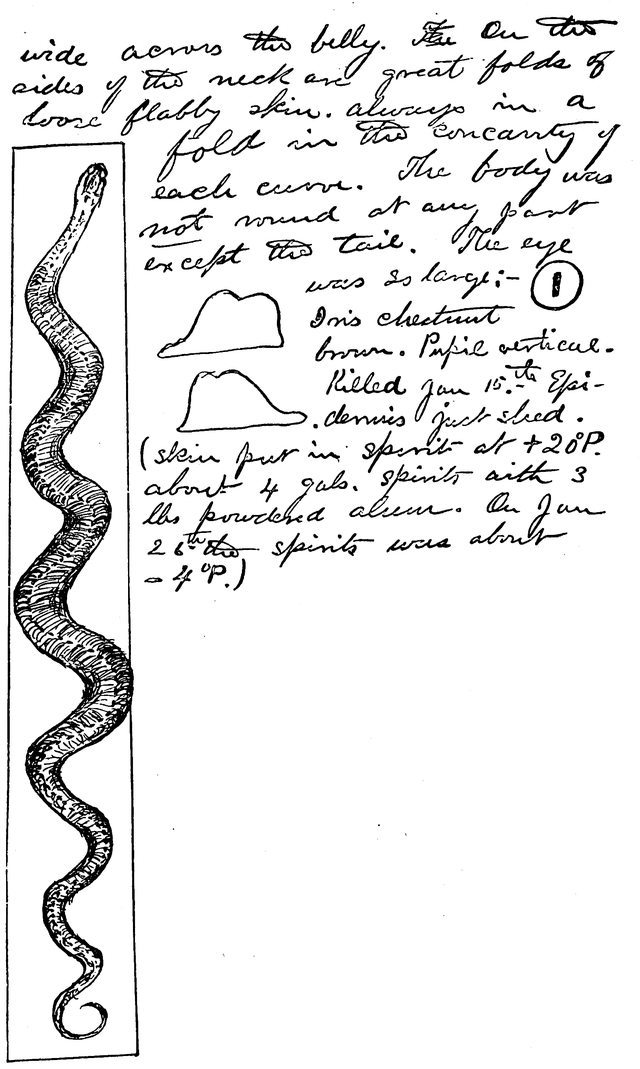 wide across the belly. On the
sides of the neck are great folds of
loose flabby skin. always in a
fold in the concavity of
each curve. The body was
not round at any part
except the tail. The eye
was so large:- 1
Iris chestnut
brown. Pupil vertical.
Killed Jan 15.th Epi-
dermis just shed.
(skin put in spirit at +20°P.
about 4 gals. spirits with 3
lbs powdered alum. On Jan
26th the spirits was about
- 4°P.)